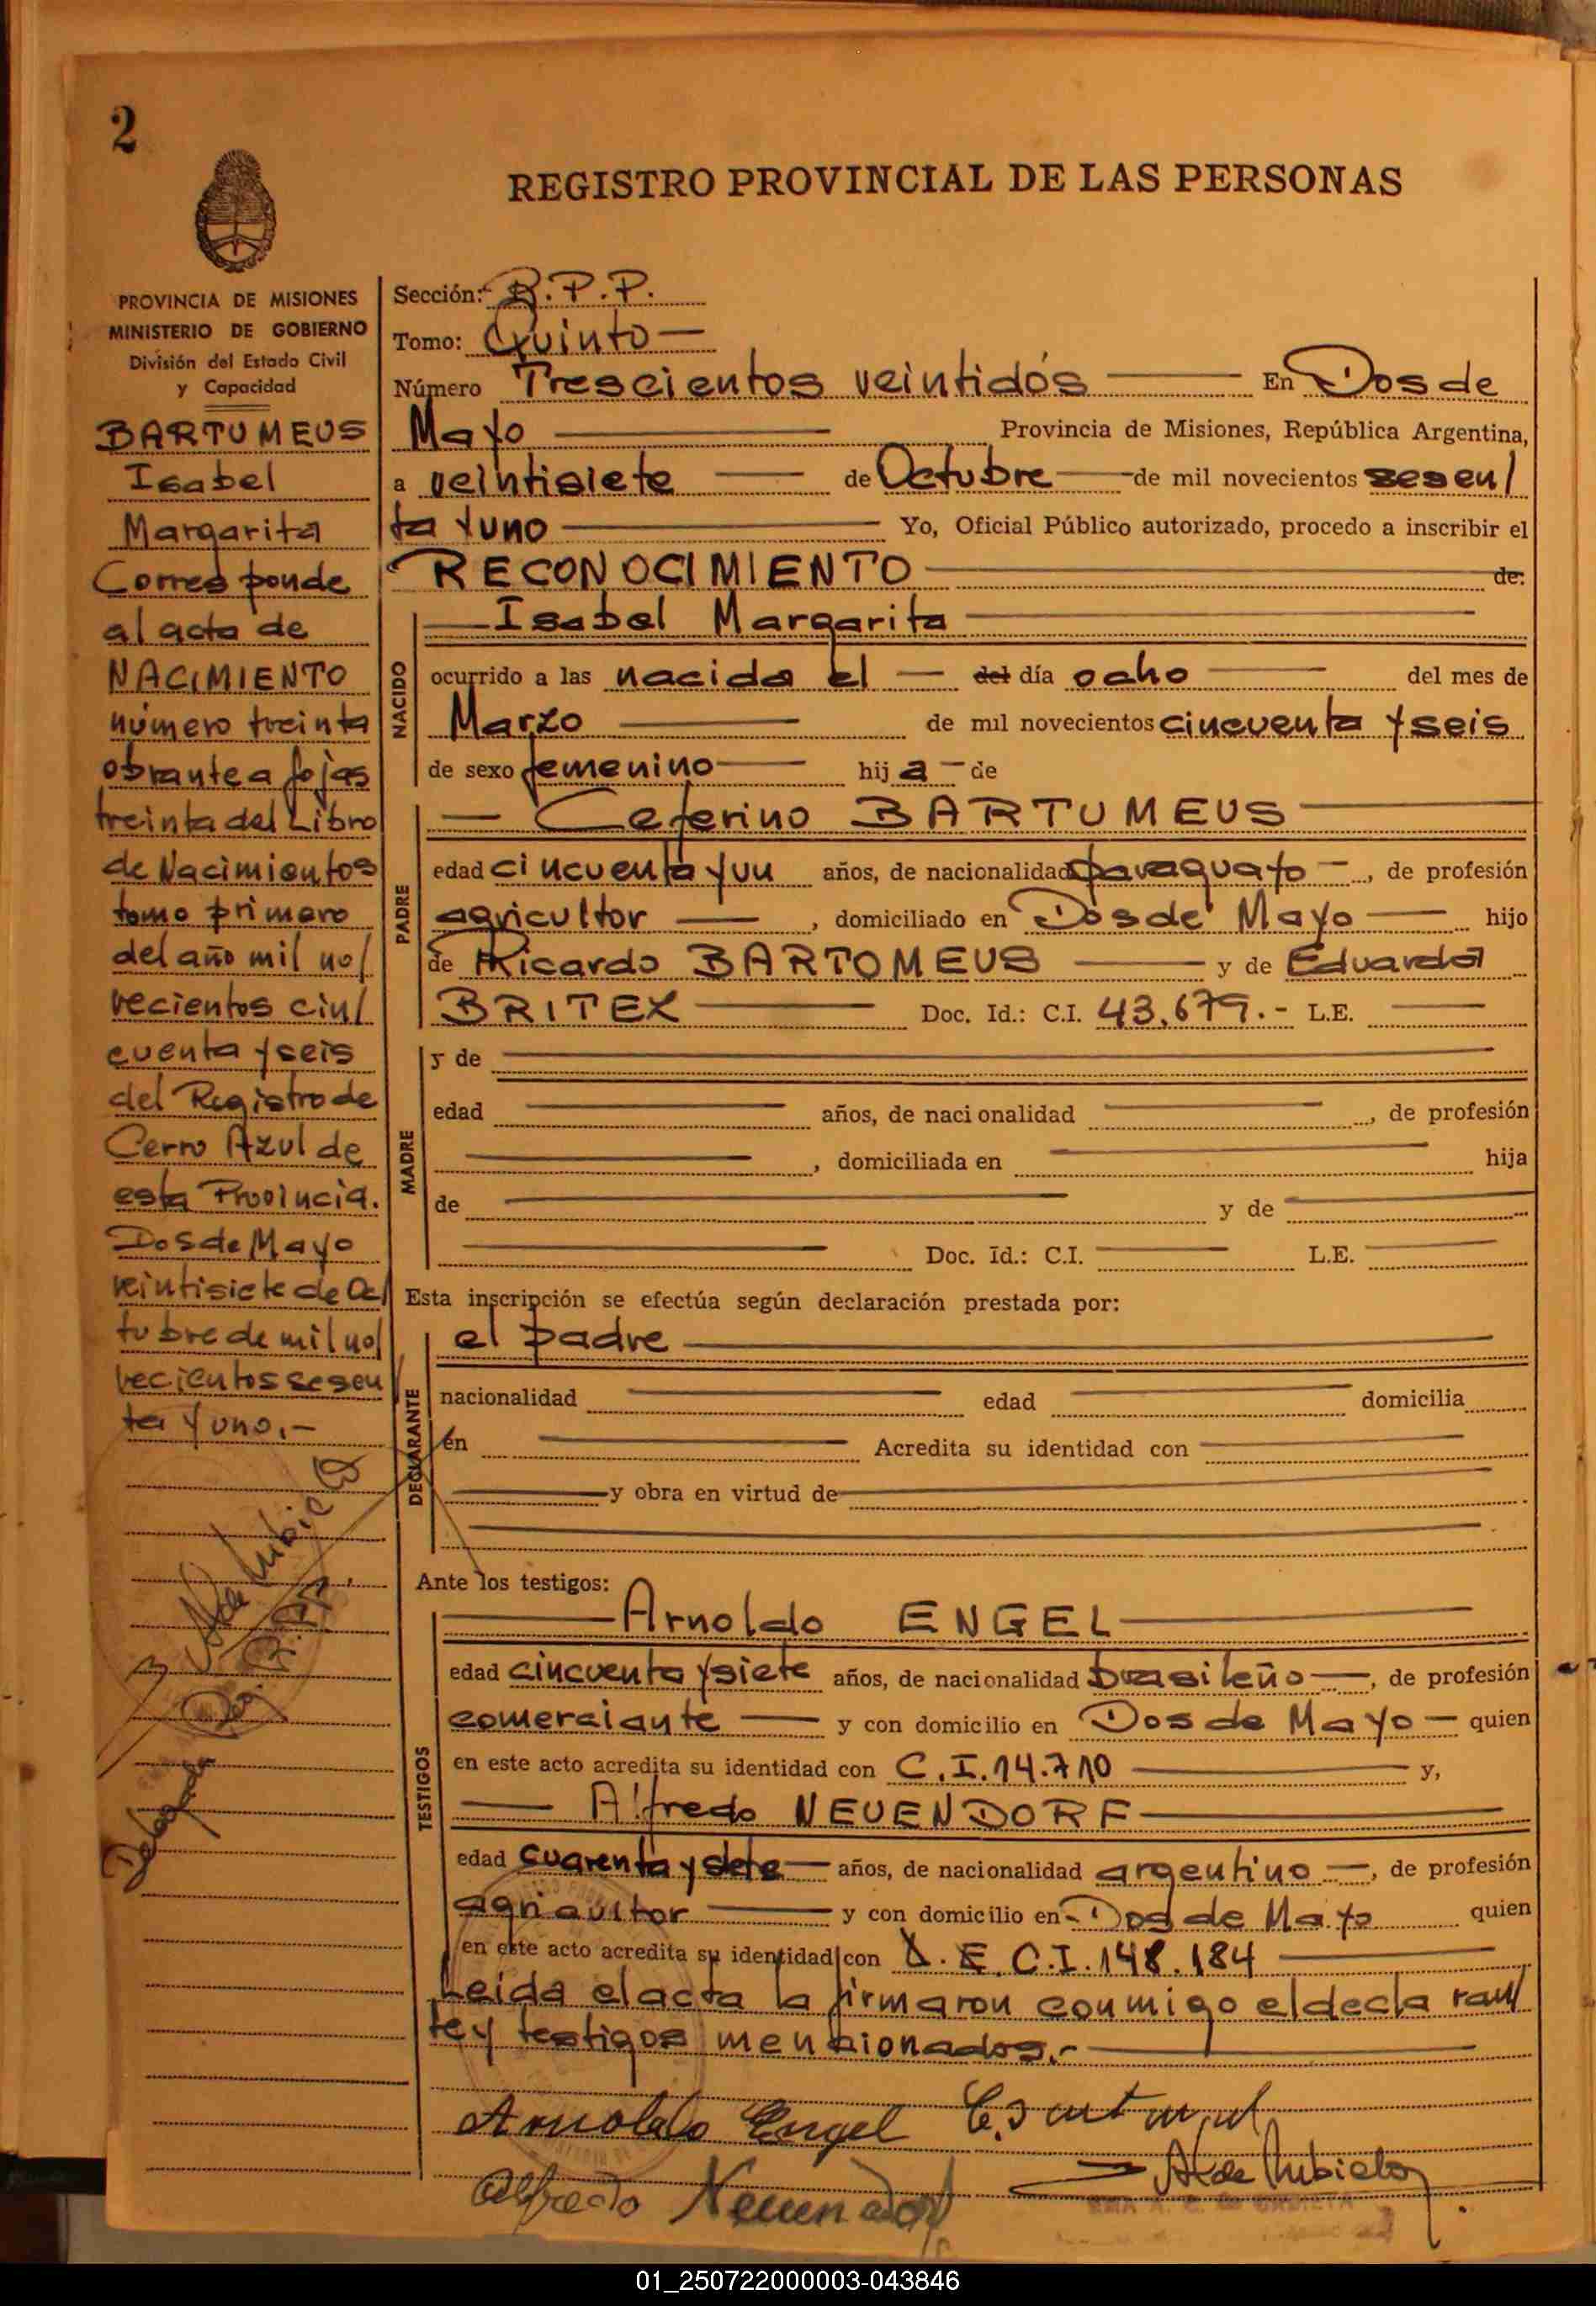 2
REGISTRO PROVINCIAL DE LAS PERSONAS
PROVINCIA DE MISIONES
MINISTERIO DE GOBIERNO
División del Estado Civil
y Capacidad
BARTUMEUS
Isabel
Margarita
Corresponde
al acta de
NACIMIENTO
número treinta
obrante a fojas
treinta del Libro
de Nacimientos
tomo primero
del año mil no/
vecientos cin/
cuenta y seis
del Registro de
Cerro Azul de
esta Provincia.
Dos de Mayo
veintisiete de Oc/
tubre de mil no/
vecientos sesen
ta y uno.-
Sección: R.P.P.
Tomo: Quinto
Número Trescientos veintidós En Dos de
Mayo Provincia de Misiones, República Argentina,
a veintisiete de Octubre de mil novecientos sesen/
ta y uno Yo, Oficial Público autorizado, procedo a inscribir el
RECONOCIMIENTO de:
Isabel Margarita
NACIDO
ocurrido a las nacida el del día ocho del mes de
Marzo de mil novecientos cincuenta y seis
de sexo femenino hij a de
Ceferino BARTUMEUS
PADRE
edad cincuenta y un años, de nacionalidad paraguayo, de profesión
agricultor, domiciliado en Dos de Mayo hijo
de Ricardo BARTOMEUS y de Eduarda
BRITEZ Doc. Id.: C.I. 43.679.- L.E.
MADRE
y de
edad años, de nacionalidad , de profesión
, domiciliada en hija
de y de
Doc. Id.: C.I. L.E.
Esta inscripción se efectúa según declaración prestada por:
el padre
DECLARANTE
nacionalidad edad domicilia
en Acredita su identidad con
y obra en virtud de
Ante los testigos:
Arnoldo ENGEL
TESTIGOS
edad cincuenta y siete años, de nacionalidad brasileño, de profesión
comerciante y con domicilio en Dos de Mayo quien
en este acto acredita su identidad con C.I. 14.710 y,
Alfredo NEUENDORF
edad cuarenta y siete años, de nacionalidad argentino, de profesión
agricultor y con domicilio en Dos de Mayo quien
en este acto acredita su identidad con C.I. 148.184
Leida el acta la firmaron conmigo el decla ran/
te y testigos mencionados.-
Arnoldo Engel
Alfredo Neuendorf
01_250722000003-043846